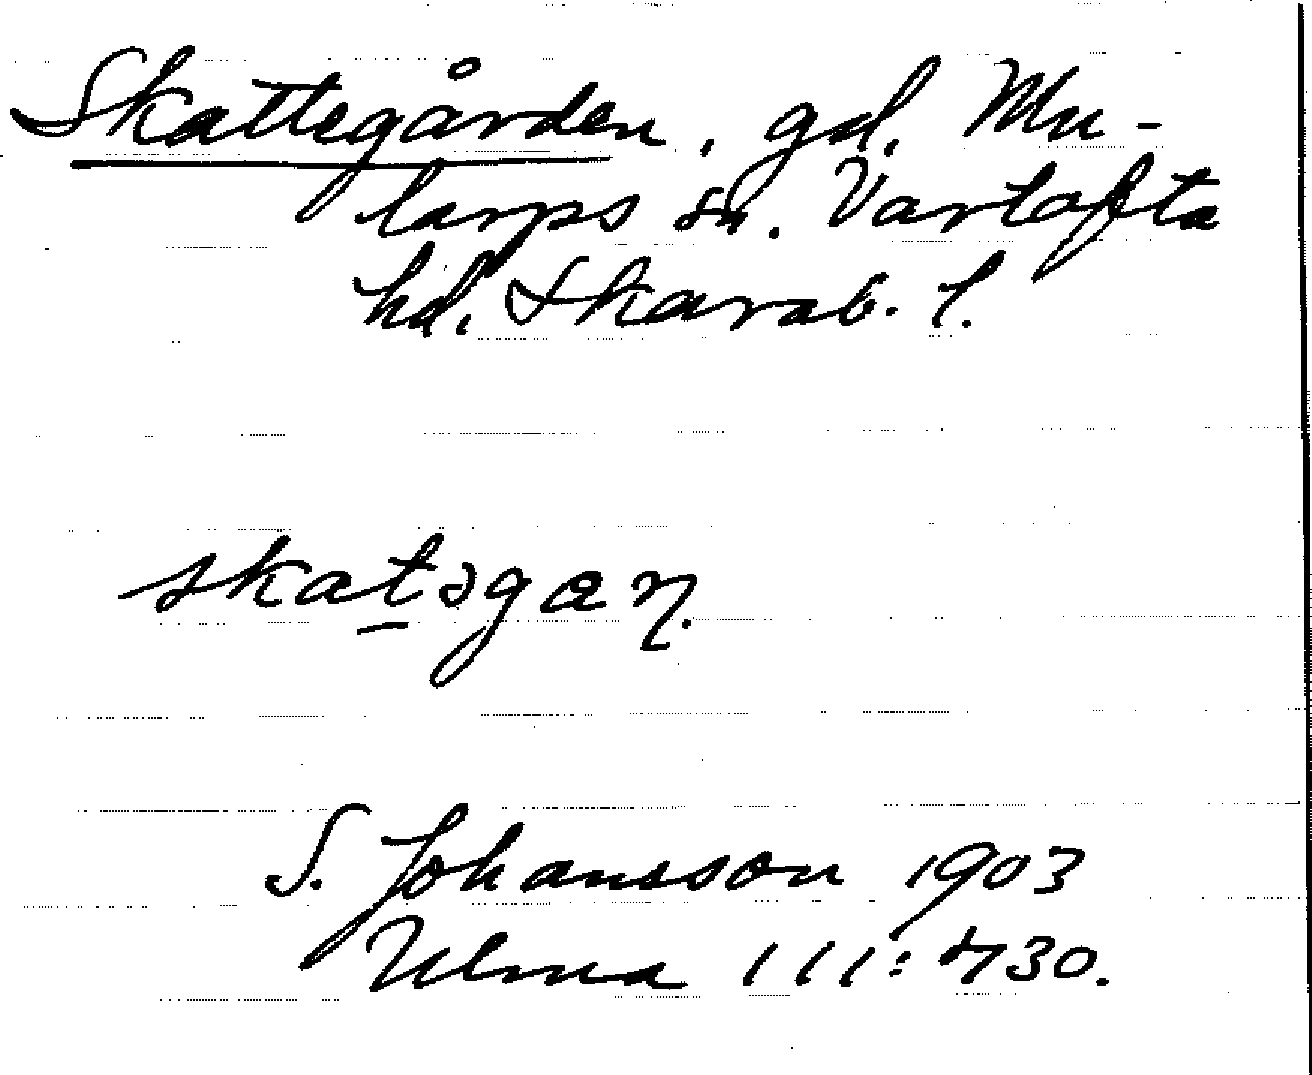 Skattegården, gd, Mu-
larps sn. Vartofta
hd. Skarab. l.
skatəgaɳ.
S. Johansson 1903
Ulma 111:430.